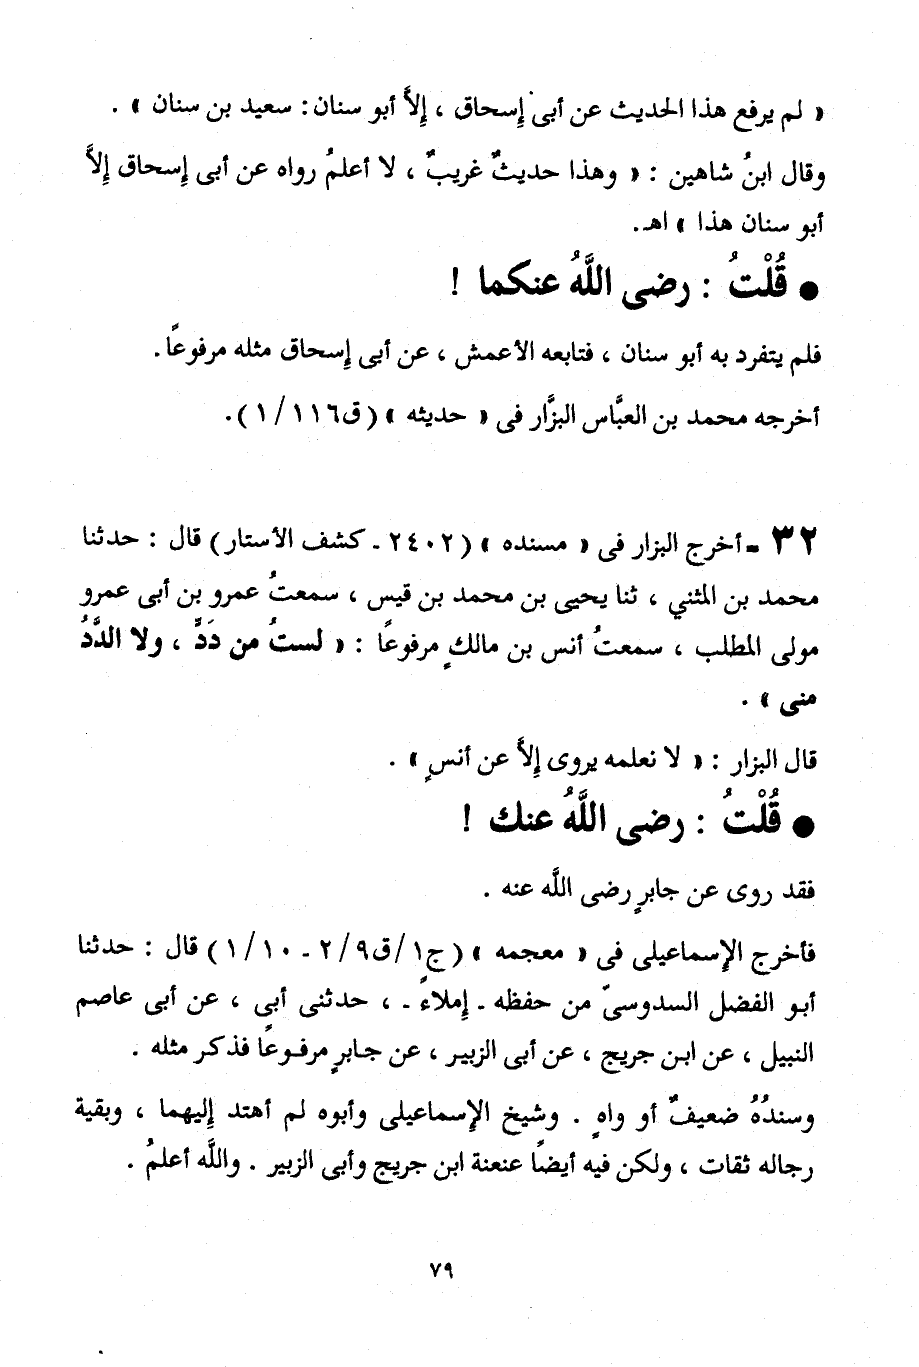 « لم يرفع هذا الحديث عن أبى إسحاق ، إلاَّ أبو سنان : سعيد بن سنان » .
وقال ابنُ شاهين : « وهذا حديثٌ غريبٌ ، لا أعلمُ رواه عن أبى إسحاق إلاَّ
أبو سنان هذا » اهـ.
● قُلْتُ : رضى اللَّهُ عنكما !
فلم يتفرد به أبو سنان ، فتابعه الأعمش ، عن أبى إسحاق مثله مرفوعًا .
أخرجه محمد بن العبَّاس البزَّار فى « حديثه » (ق١١٦/ ١).
٣٢ ـ أخرج البزار فى « مسنده » (٢٤٠٢ ـ كشف الأستار) قال : حدثنا
محمد بن المثني ، ثنا يحيى بن محمد بن قيس ، سمعتُ عمرو بن أبى عمرو
مولى المطلب ، سمعتُ أنس بن مالكٍ مرفوعًا : « لستُ من دَدٍّ ، ولا الدَّدُ
منى » .
قال البزار : « لا نعلمه يروى إلاَّ عن أنسٍ » .
● قُلْتُ : رضى اللَّهُ عنك !
فقد روى عن جابرٍ رضى اللَّه عنه .
فأخرج الإسماعيلى فى « معجمه » (ج١/ق٩/ ٢ ـ ١٠/ ١) قال : حدثنا
أبو الفضل السدوسىّ من حفظه ـ إملاءً ـ ، حدثنى أبى ، عن أبى عاصم
النبيل ، عن ابن جريج ، عن أبى الزبير ، عن جابرٍ مرفوعًا فذكر مثله .
وسندُهُ ضعيفٌ أو واهٍ . وشيخ الإسماعيلى وأبوه لم أهتد إليهما ، وبقية
رجاله ثقات ، ولكن فيه أيضًا عنعنة ابن جريج وأبى الزبير . واللَّه أعلمُ .
٧٩